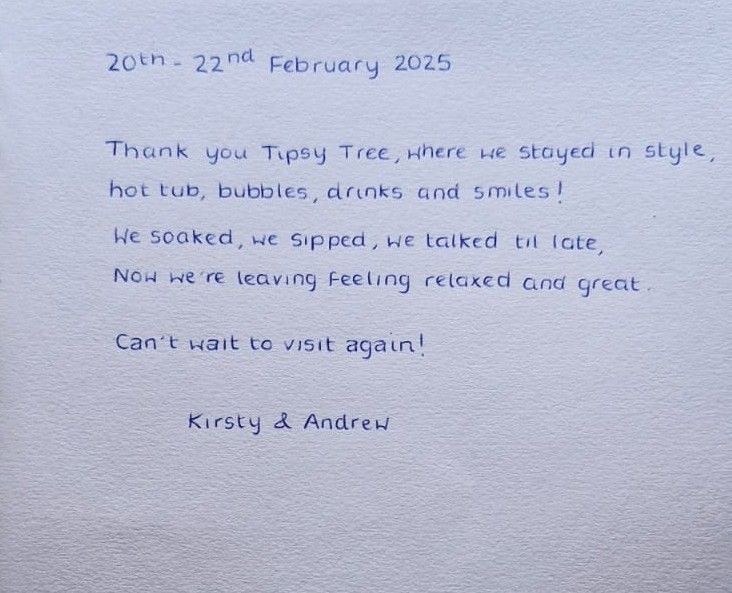 20th - 22nd February 2025
Thank you Tipsy Tree, where we stayed in style,
hot tub, bubbles, drinks and smiles!
We soaked, we sipped, we talked til late,
Now we're leaving feeling relaxed and great.
Can't wait to visit again!
Kirsty & Andrew